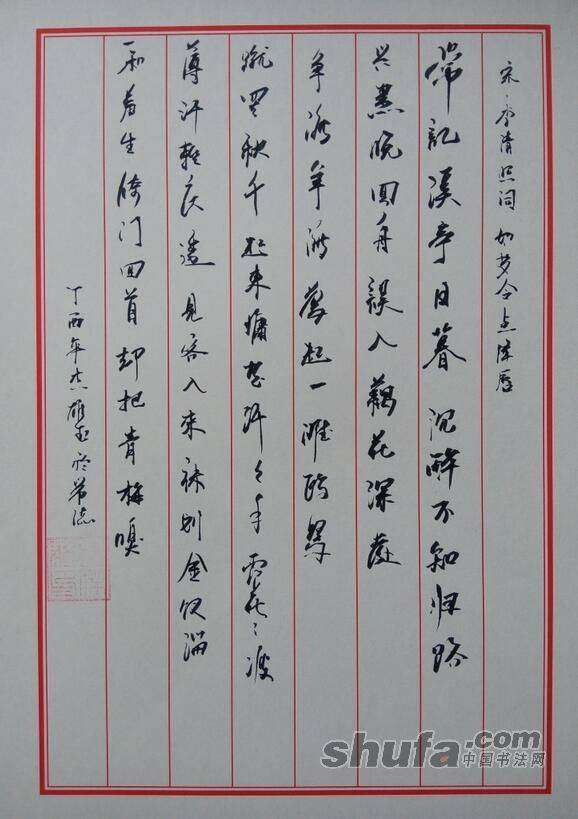 宋·李清照词 如梦令 点绛唇
常记溪亭日暮 沉醉不知归路
兴尽晚回舟 误入藕花深处
争渡 争渡 惊起一滩鸥鹭
蹴罢秋千 起来慵整纤々手 露花瘦
薄汗轻衣透 见客入来 袜刬金钗溜
和羞走 倚门回首 却把青梅嗅
丁酉年
shufa.com
中国书法网